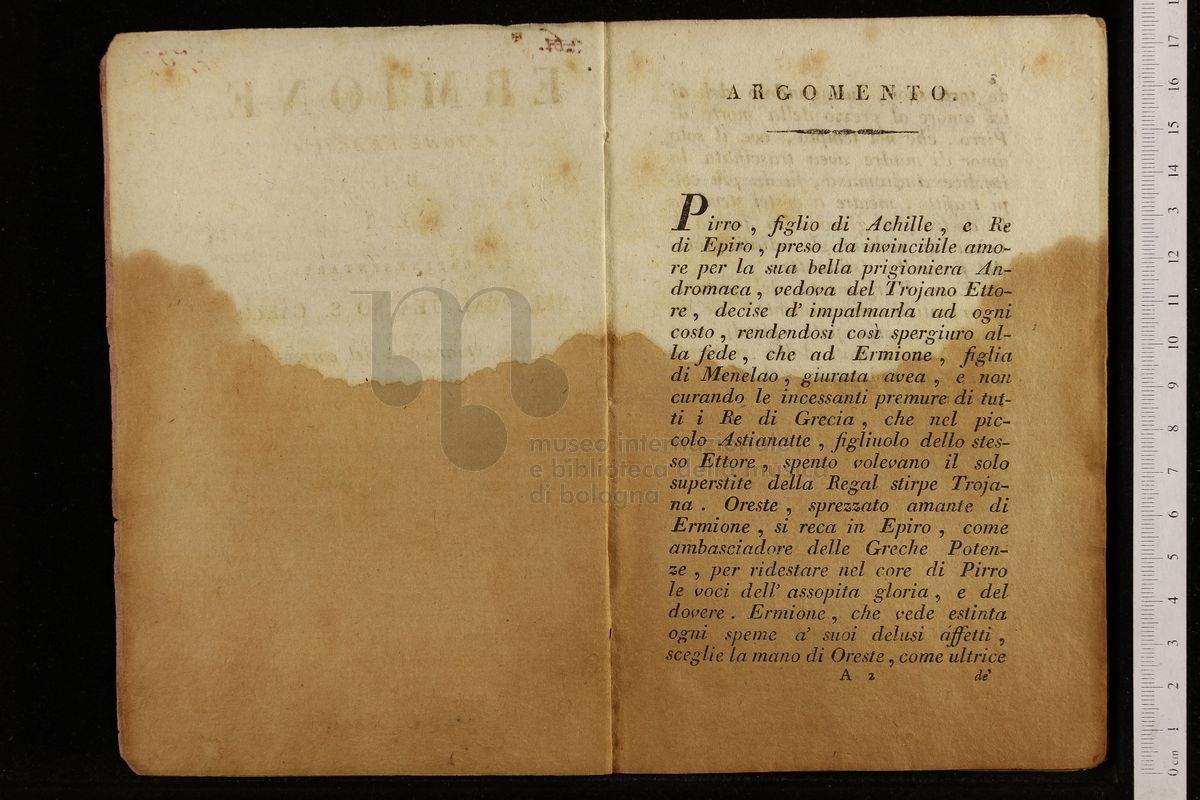 3
ARGOMENTO.
Pirro , figlio di Achille , e Re
di Epiro , preso da invincibile amo-
re per la sua bella prigioniera An-
dromaca , vedova del Trojano Etto-
re , decise d' impalmarla ad ogni
costo , rendendosi così spergiuro al-
la fede , che ad Ermione , figlia
di Menelao , giurata avea , e non
curando le incessanti premure di tut-
ti i Re di Grecia , che nel pic-
colo Astianatte , figliuolo dello stes-
so Ettore , spento volevano il solo
superstite della Regal stirpe Troja-
na . Oreste , sprezzato amante di
Ermione , si reca in Epiro , come
ambasciadore delle Greche Poten-
ze , per ridestare nel core di Pirro
le voci dell' assopita gloria , e del
dovere . Ermione , che vede estinta
ogni speme a' suoi delusi affetti ,
sceglie la mano di Oreste , come ultrice
A 2 de'
museo internazionale
e biblioteca della musica
di bologna
0 cm 1 2 3 4 5 6 7 8 9 10 11 12 13 14 15 16 17